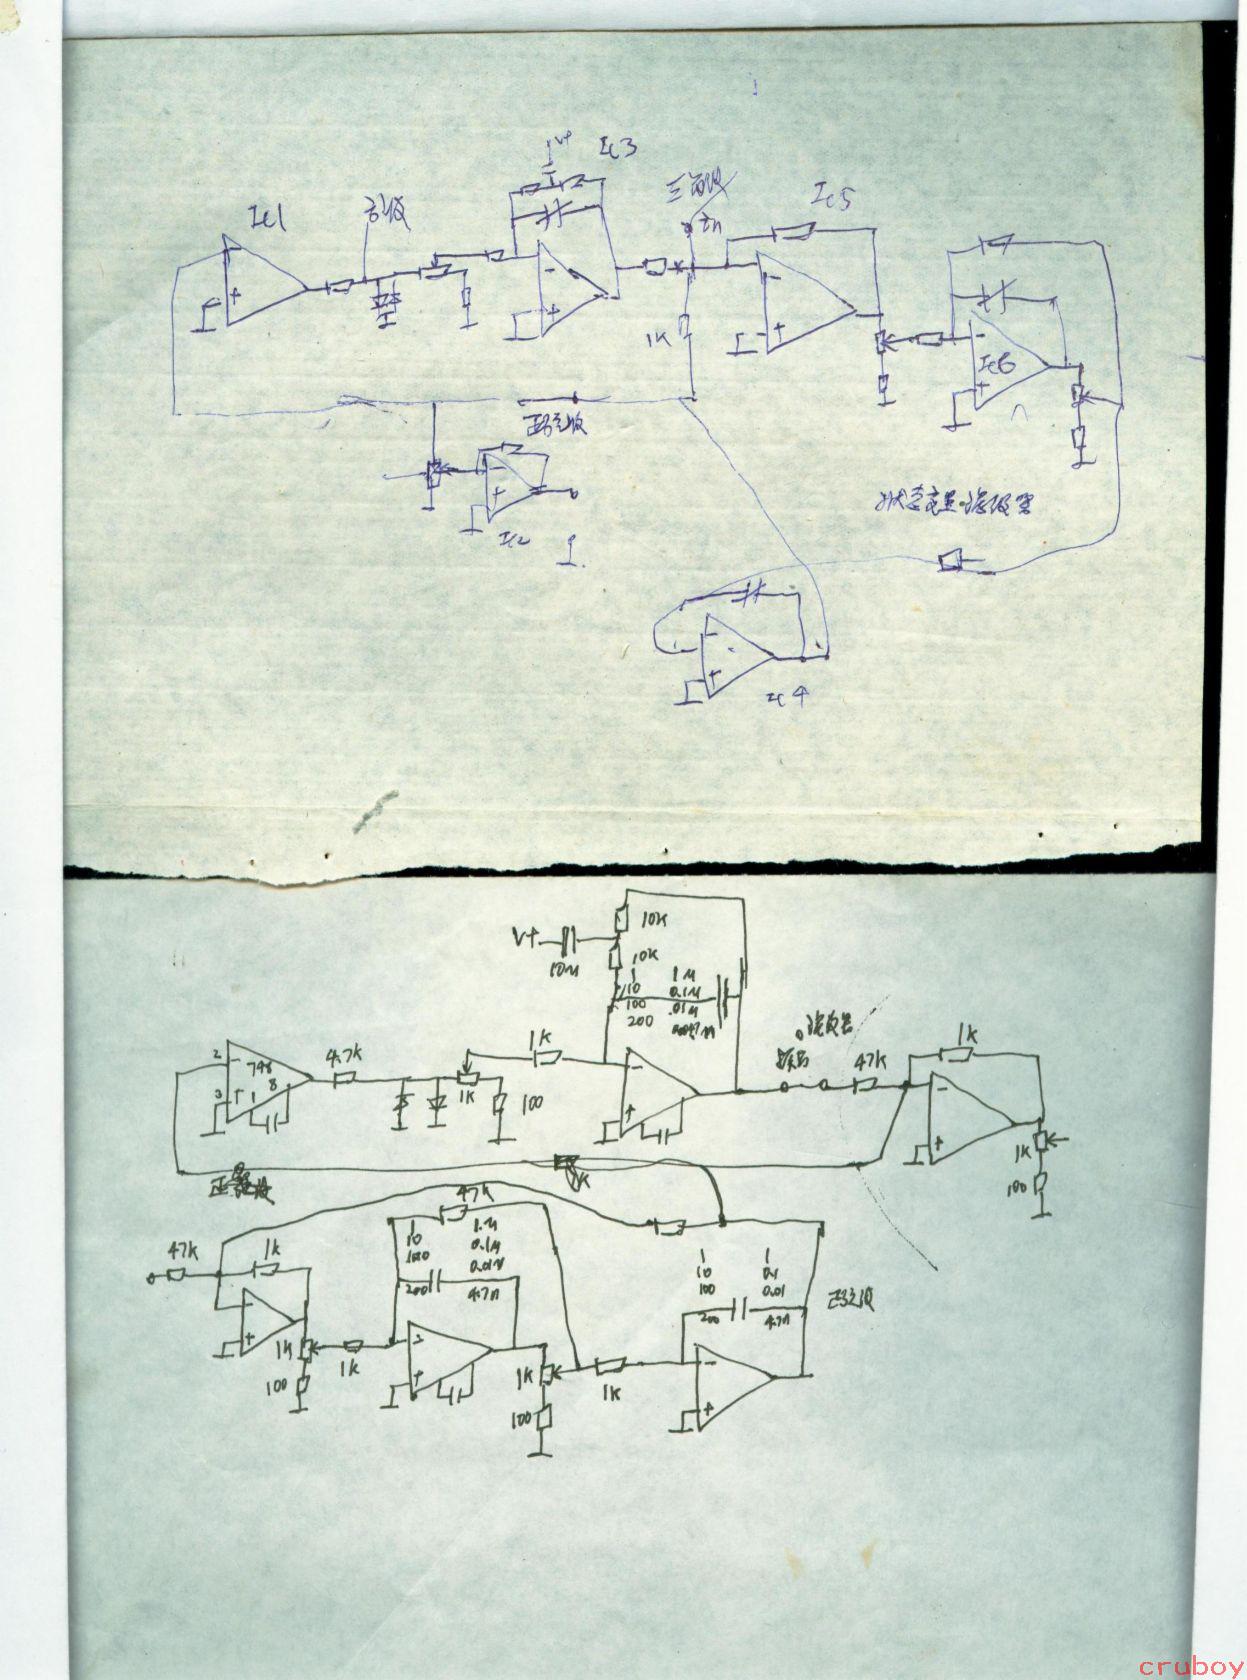 V+
Ic3
Ic1
方波
三角波
Ic5
in
1K
Ic6
正弦波
Ic2
1.
状态变量滤波器
Ic4
10K
V+
10M
10K
1 1M
10 0.1M
100 .01M
200
滤波器
1K
4.7K
1K
47K
2
748
8
3
1
1K
100
1K
100
正弦波
47K
47K
1K
1 1M
10 0.1M
100 0.01M
200 4.7n
1 1
10 0.1
100 0.01
200 4.7n
正弦波
2
1K
1K
1K
1K
100
100
cruboy